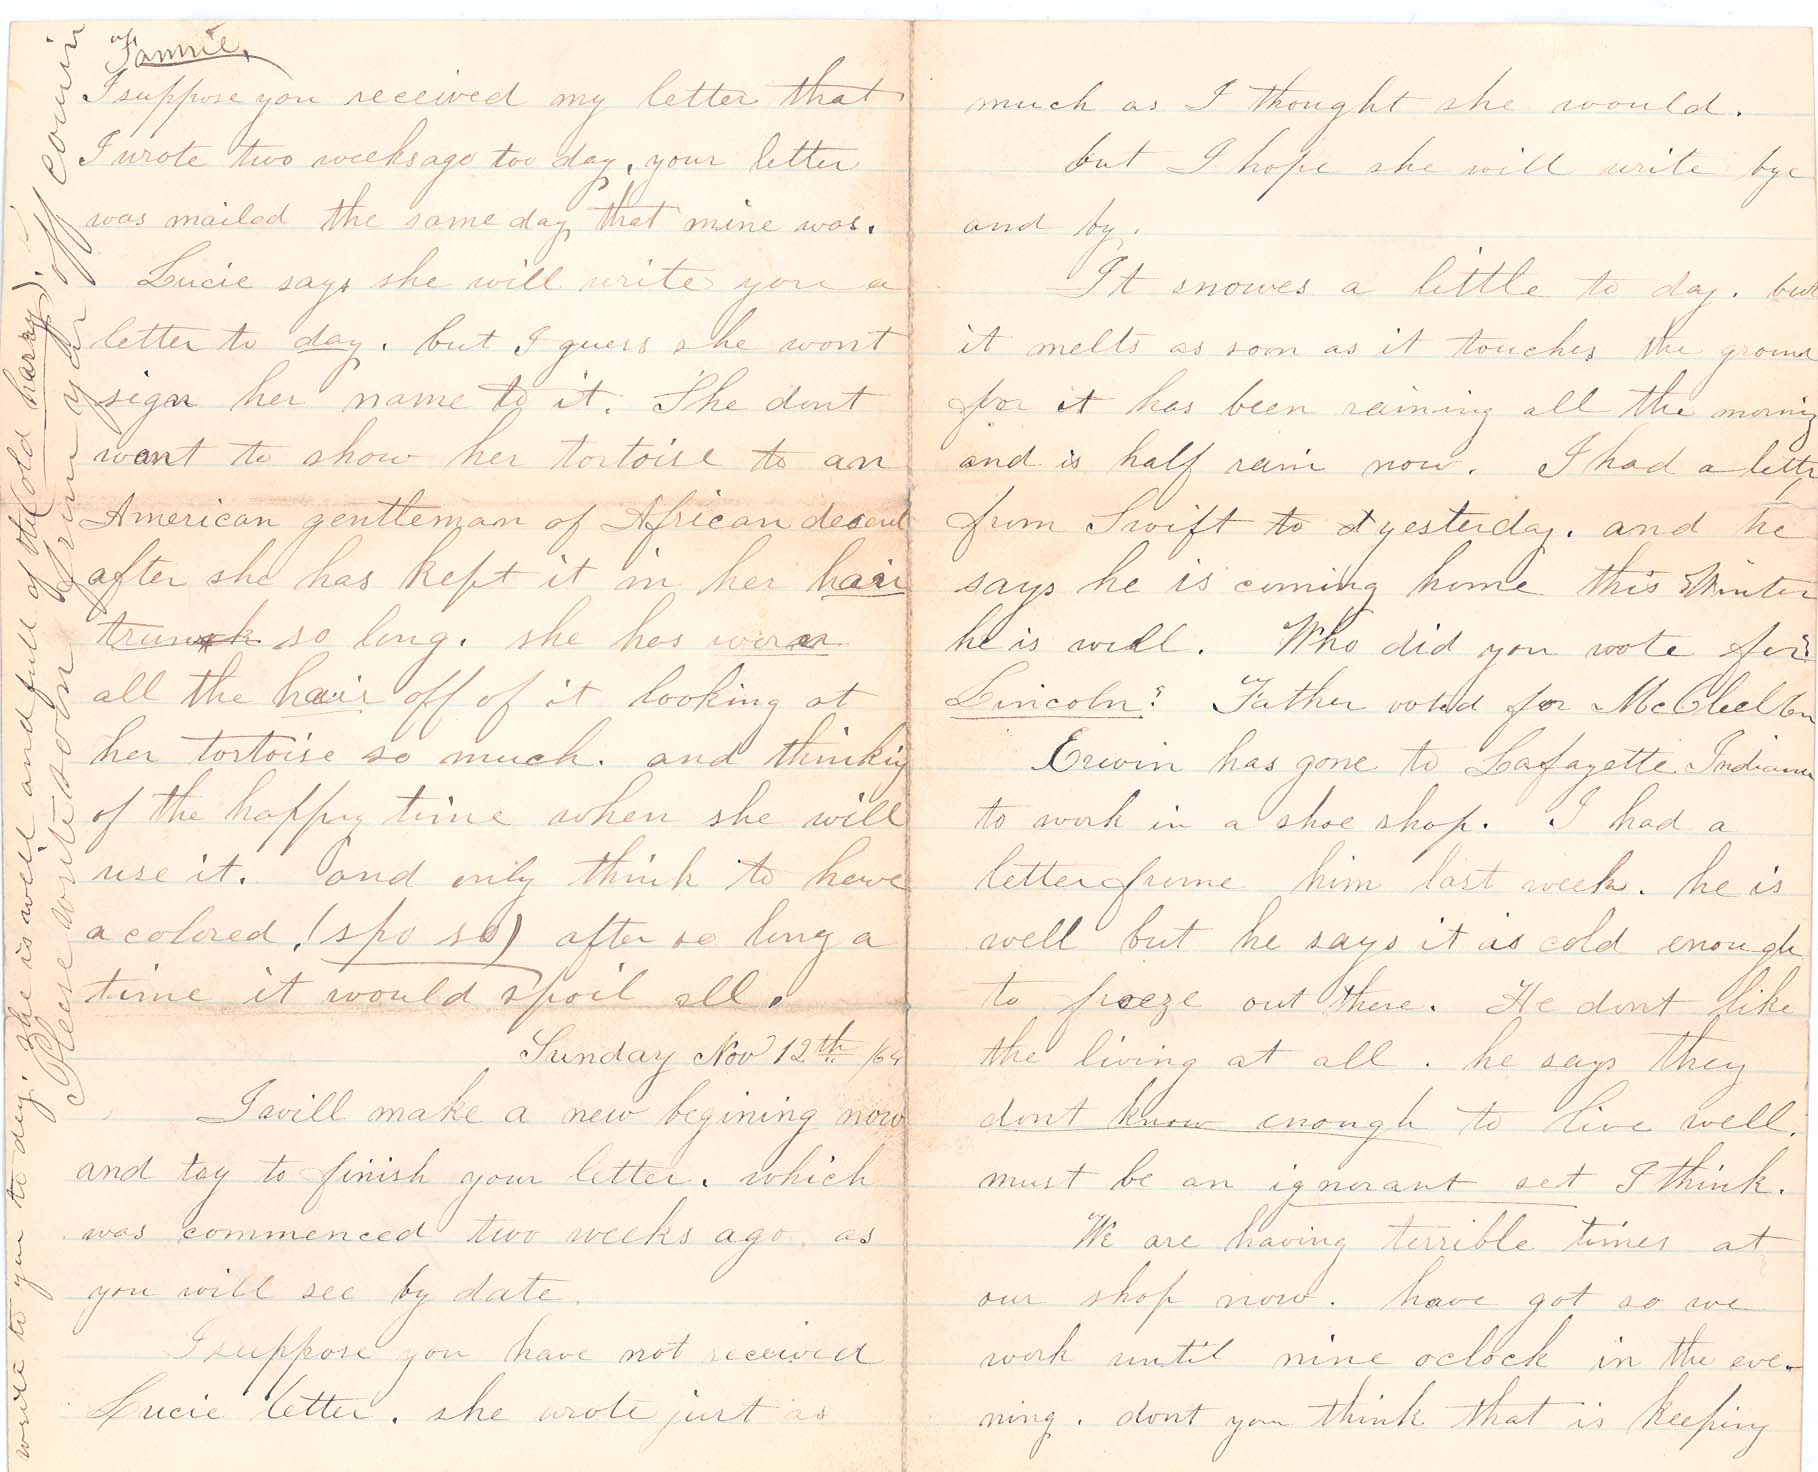 Fannie,
I suppose you received my letter that
I wrote two weeks ago too day, your letter
was mailed the same day that mine was.
Lucie says she will write you a
letter to day. but I guess she wont
sign her name to it. She dont
want to show her tortoise to an
American gentleman of African decent
after she has kept it in her hair
trunk so long. she has woren
all the hair off of it looking at
her tortoise so much. and thinking
of the happy time when she will
use it. and only think to have
a colored, (spo so) after so long a
time it would spoil all.
Sunday Nov 12th /64
I will make a new begining now
and try to finish your letter. which
was commenced two weeks ago. as
you will see by date.
I suppose you have not received
Lucie letter. she wrote just as
much as I thought she would.
but I hope she will write bye
and by.
It snowes a little to day. but
it melts as soon as it touches the ground
for it has been raining all the morning
and is half rain now. I had a letter
from Swift to yesterday. and he
says he is coming home this Winter
he is well. Who did you vote for?
Lincoln? Father voted for McClellen
Erwin has gone to Lafayette Indiana
to work in a shoe shop. I had a
letter frome him last week. he is
well but he says it is cold enough
to freeze out there. He dont like
the living at all. he says they
dont know enough to live well.
must be an ignorant set I think.
We are having terrible times at
our shop now. have got so we
work until nine oclock in the eve-
ning. dont you think that is keeping
wrote to you to day. she is well and full of the (old harry).
Please write soon from your off cousin